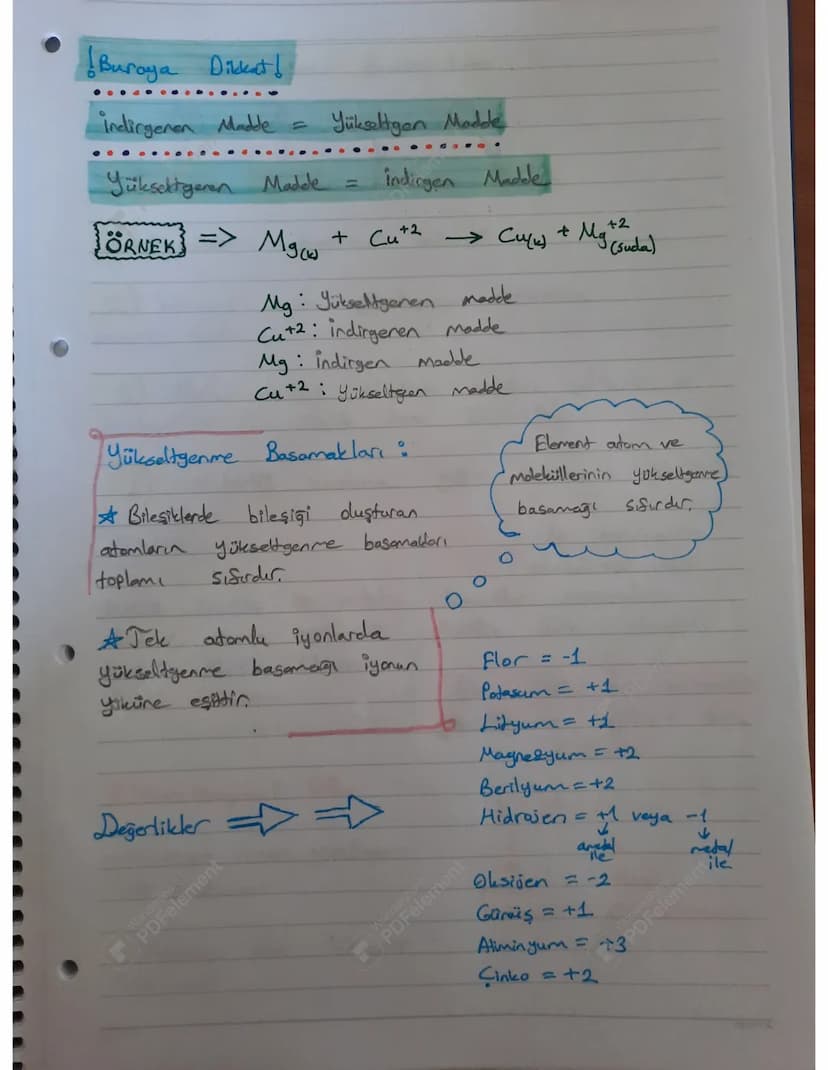 !Buraya Dikkat!
İndirgenen Madde = Yükseltgen Madde
Yükseltgenen Madde = İndirgen Madde
ÖRNEK => Mg(k) + Cu+2 → Cu(k) + Mg+2(suda)
Mg : Yükseltgenen madde
Cu+2 : İndirgenen madde
Mg : İndirgen madde
Cu+2 : Yükseltgen madde
Yükseltgenme Basamakları :
Element atom ve
moleküllerinin yükseltgenme
basamağı sıfırdır.
☆ Bileşiklerde bileşiği oluşturan
atomların yükseltgenme basamakları
toplamı sıfırdır.
☆ Tek atomlu iyonlarda
yükseltgenme basamağı iyonun
yüküne eşittir.
Değerlikler ⇒ ⇒
Flor = -1
Potasyum = +1
Lityum = +1
Magnezyum = +2
Berilyum = +2
Hidrojen = +1 veya -1
↓ ↓
ametal ile metal ile
Oksijen = -2
Gümüş = +1
Alüminyum = +3
Çinko = +2
Wondershare
PDFelement
Wondershare
PDFelement
Wondershare
PDFelement